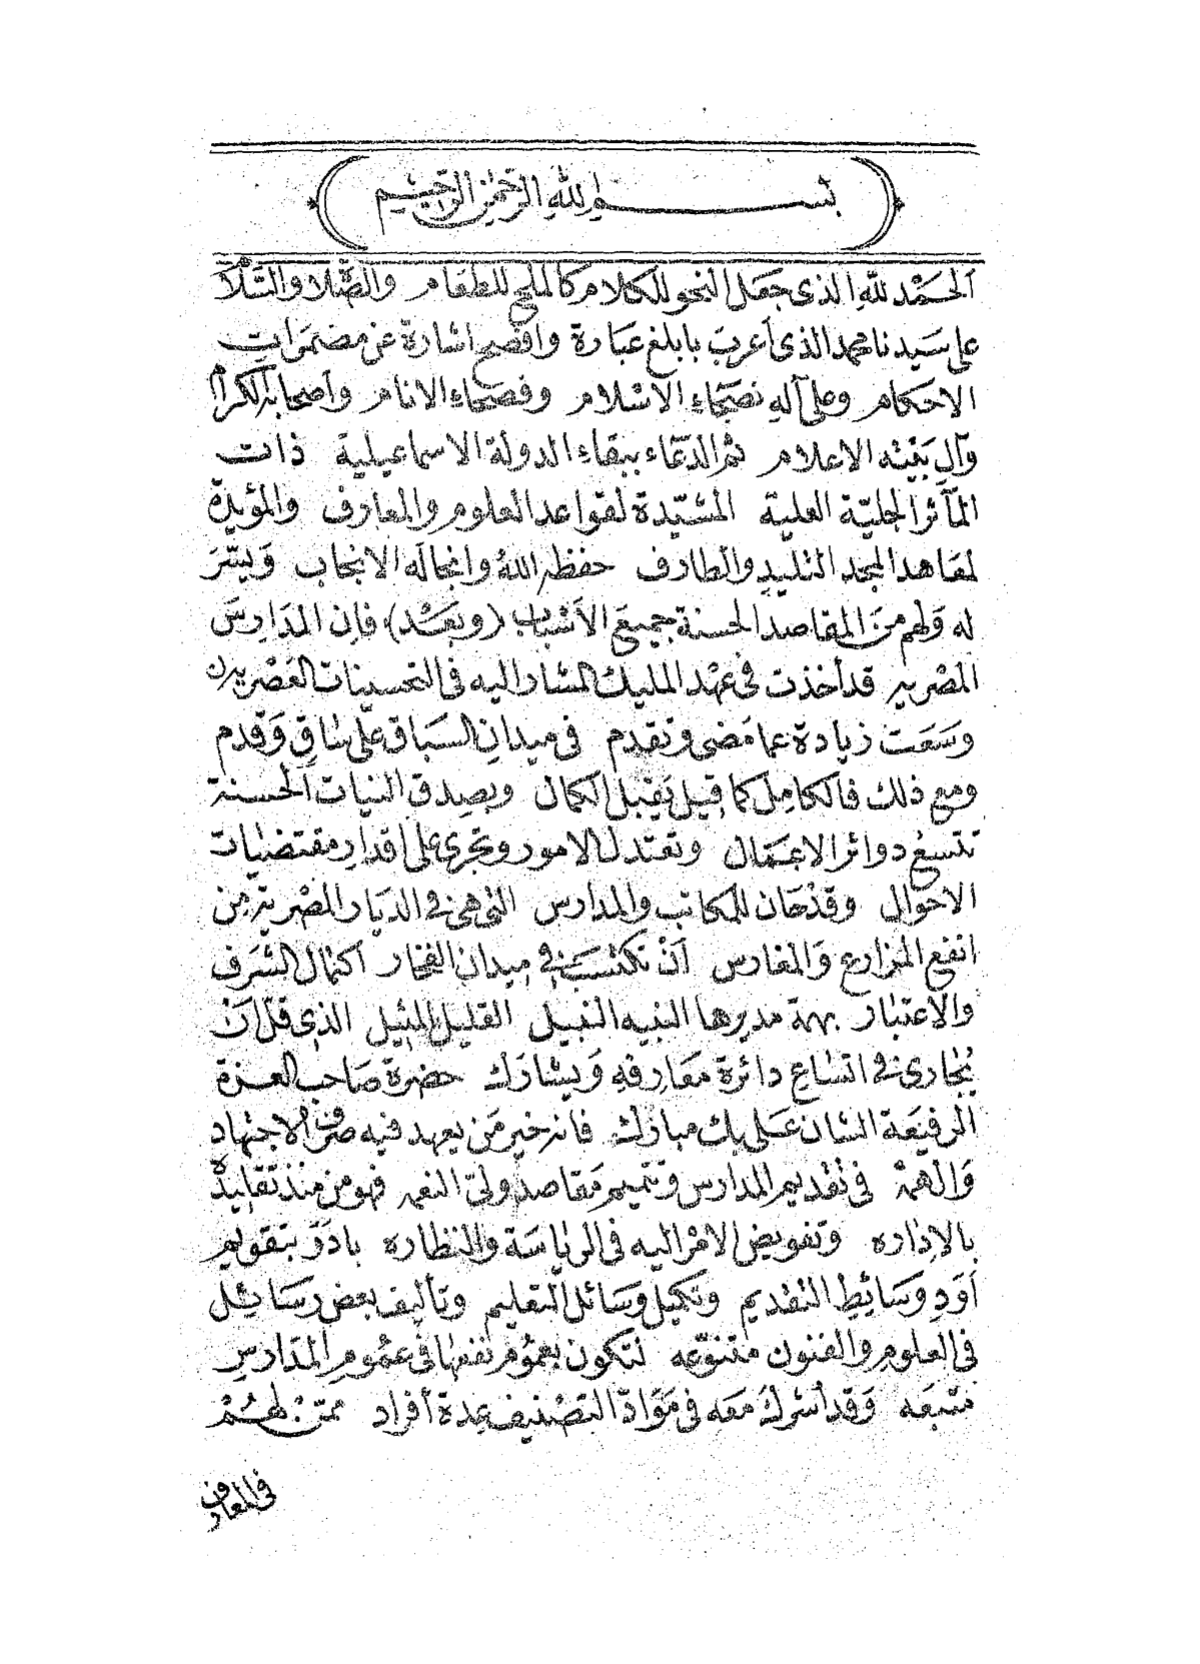 بسم الله الرحمن الرحيم
الحمد لله الذى جعل النحو للكلام كالملح للطعام والصلاة والسلام
على سيدنا محمد الذى أعرب بابلغ عبارة وافصح اشارة عن مضمرات
الاحكام وعلى آله نصحاء الاسلام وفصحاء الانام وأصحابه الكرام
وآل بيته الاعلام ثم الدعاء ببقاء الدولة الاسماعيلية ذات
المآثر الجلية العلية المشيدة لقواعد العلوم والمعارف والمؤيدة
لمعاهد المجد التليد والطارف حفظه الله وانجاله الانجاب ويسر
له ولهم من المقاصد الحسنة جميع الأسباب (وبعد) فان المدارس
المصريه قد أخذت فى عهد المليك المشار اليه فى التحسينات العصريه
وسعت زيادة عما مضى وتقدم فى ميدان السباق على ساق وقدم
ومع ذلك فالكامل كما قيل يقبل الكمال وبصدق النيات الحسنة
تتسع دوائر الاعمال وتعتدل الامور وتجرى على اقدار مقتضيات
الاحوال وقد حان للمكاتب والمدارس التى هى فى الديار المصرية من
انفع المزارع والمغارس أن تكتسب فى ميدان الفخار اكتمال الشرف
والاعتبار بهمة مديرها النبيه النبيل القليل المثيل الذى قل ان
يجارى فى اتساع دائرة معارفه ويشارك حضرة صاحب العزة
الرفيعة الشان على بك مبارك فانه خير من يعهد فيه صرف الاجتهاد
والهمة فى تقديم المدارس وتتميم مقاصد ولىّ النعم فهو من منذ تقليده
بالاداره وتفويض الامر اليه فى الرياسة والنظاره بادر بتقويم
أود وسائط التقديم وتكميل وسائل التعليم وتأليف بعض رسائل
فى العلوم والفنون متنوعه لتكون بعموم نفعها فى عموم المدارس
متبعه وقد أشرك معه فى مواد التصنيف عدة أفراد ممن لهم
فى المعارف